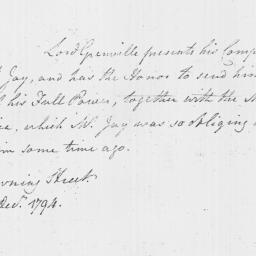 Lord Grenville presents his Comp
Jay, and has the Honor to send him
his Full Power, together with the
which Mr. Jay was so obliging
some time ago.
Street
Decr. 1794.